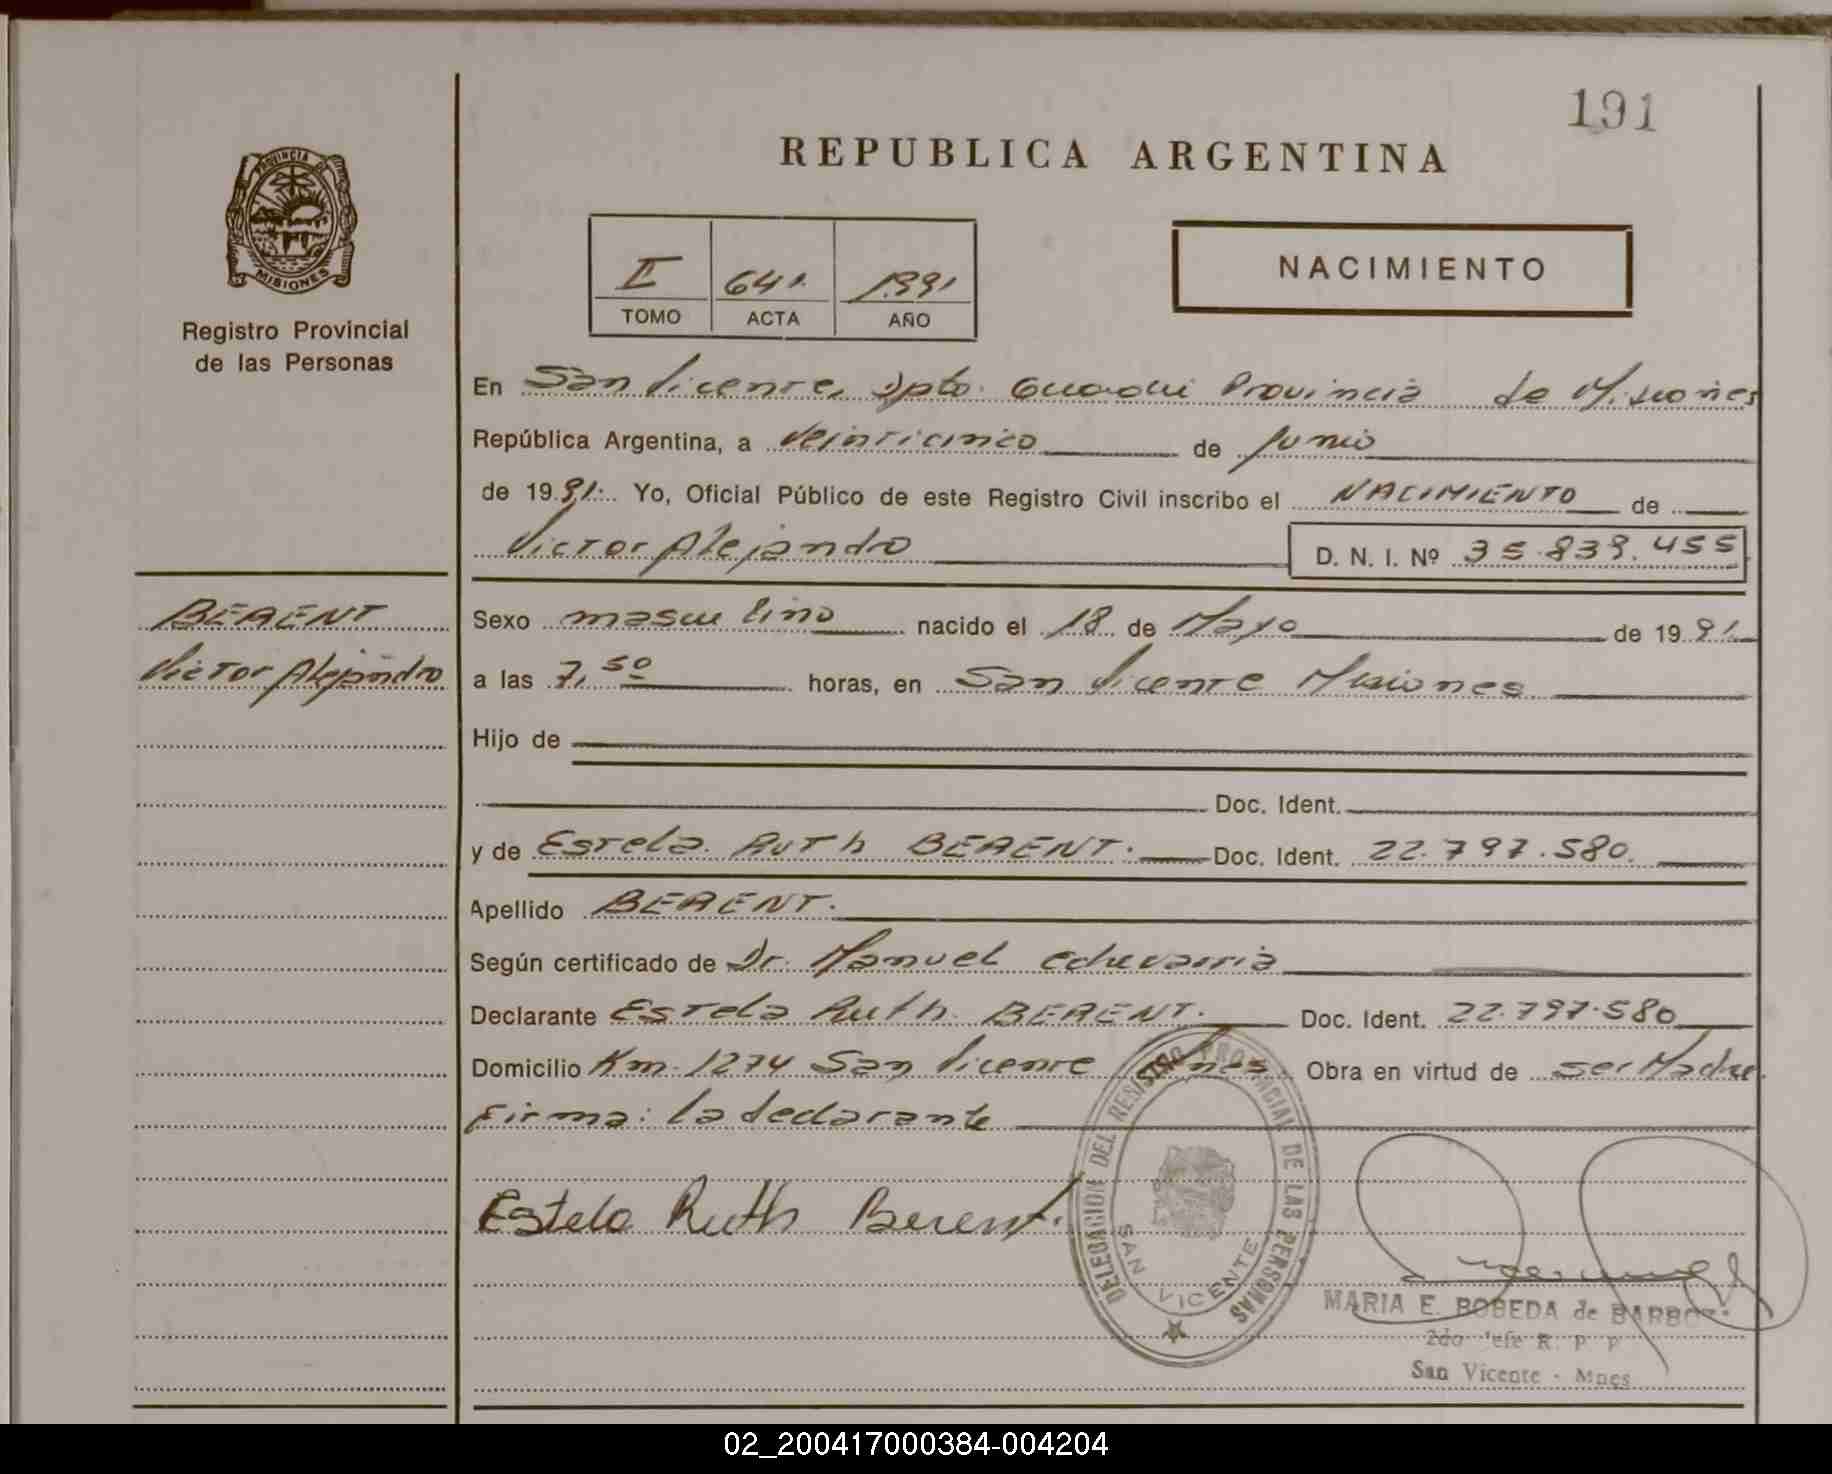 191
REPUBLICA ARGENTINA
PROVINCIA DE
MISIONES
Registro Provincial
de las Personas
II 641. 1991
TOMO ACTA AÑO
NACIMIENTO
En San Vicente, Dpto. Guaraní Provincia de Misiones
República Argentina, a veinticinco de Junio
de 1991. Yo, Oficial Público de este Registro Civil inscribo el NACIMIENTO de
Victor Alejandro D. N. I. Nº 35.839.455
BERENT
Victor Alejandro
Sexo masculino nacido el 18 de Mayo de 1991.
a las 7,50 horas, en San Vicente Misiones
Hijo de
Doc. Ident.
y de Estela Ruth BERENT. Doc. Ident. 22.797.580.
Apellido BERENT.
Según certificado de Dr. Manuel Echevarria
Declarante Estela Ruth BERENT. Doc. Ident. 22.797.580
Domicilio Km. 1274 San Vicente Mnes. Obra en virtud de ser Madre.
Firma: la declarante
Estela Ruth Berent.
DELEGACION DEL REGISTRO PROVINCIAL DE LAS PERSONAS
SAN VICENTE
MARIA E. BOBEDA de BARBO
2do Jefe R. P. P.
San Vicente - Mnes
02_200417000384-004204